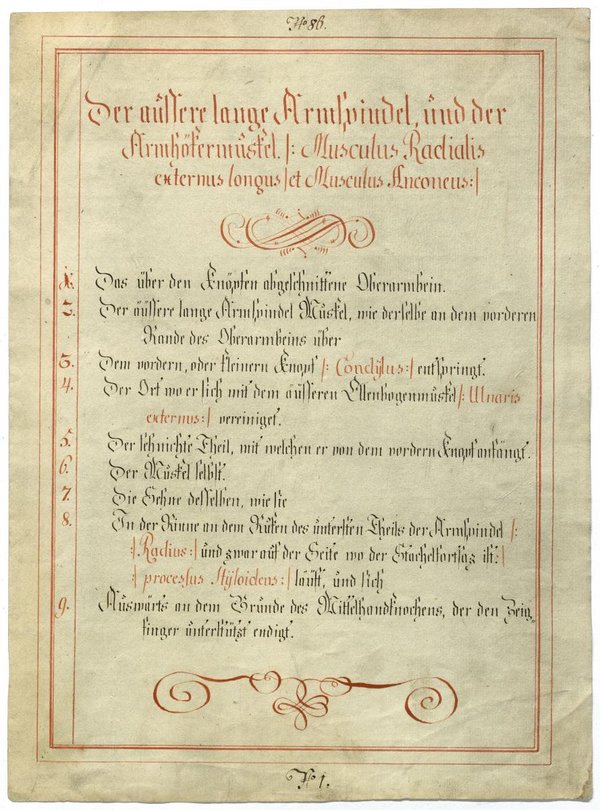 No 86.
Der äussere lange Armspindel, und der
Armhökermuskel. /: Musculus Radialis
externus longus/et Musculus Anconeus:/
1. Das über den Knöpfen abgeschnittene Oberarmbein.
2. Der äussere lange Armspindel Muskel, wie derselbe an dem vorderen
Rande des Oberarmbeins über
3. Dem vordern, oder kleinern Knopf /: Condylus:/ entspringt.
4. Der Ort wo er sich mit dem äusseren Ellenbogenmuskel /: Ulnaris
externus:/ vereiniget.
5. Der sehnichte Theil, mit welchen er von dem vordern Knopf anfängt.
6. Der Muskel selbst.
7. Die Sehne desselben, wie sie
8. In der Rinne an dem Rüken des untersten Theils der Armspindel /:
:/ Radius:/ und zwar auf der Seite wo der Stachelfortsaz ist:/
:/ processus styloideus:/ läuft, und sich
9. Auswärts an dem Grunde des Mittelhandknochens, der den Zeig„
finger unterstützt endigt.
No 1.